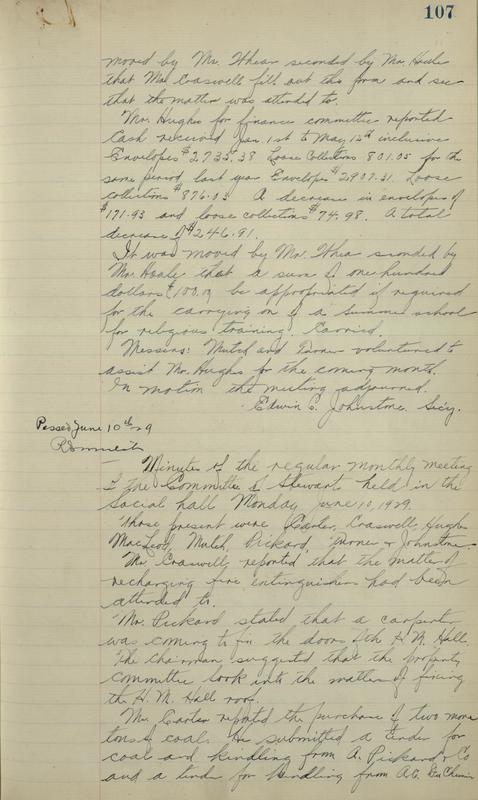 107
moved by Mr. Shea seconded by Mr.
that Mr. Craswell fill out the form and see
that the matter was attended to.
Mr. Hughes for finance committee reported
Cash received Jan. 1st to May 12th inclusive
Envelopes $2735.38 Loose Collections 801.05 for the
same period last year Envelopes $2907.31. Loose
collections $876.03 A decrease in envelopes of
$171.93 and loose collections $74.98. A total
decrease of $246.91.
It was moved by Mr. Shea seconded by
Mr. that a sum of one hundred
dollars $100.00 be appropriated if required
for the carrying on of a summer school
for religious training. Carried.
Messers: Mutch and volunteered to
assist Mr. Hughes for the coming month.
On motion the meeting adjourned.
Edwin C. Johnstone, Secy.
Passed June 10th 29
Minutes of the regular monthly meeting
of the Committee of Stewards held in the
Social hall Monday June 10, 1929.
Those present were Carter, Craswell, Hughes
MacLeod, Mutch, Pickard, & Johnstone.
Mr. Craswell reported that the matter of
recharging fire extinguishers had been
attended to.
Mr. Pickard stated that a carpenter
was coming to fix the doors of the H. M. Hall.
The chairman suggested that the property
committee look into the matter of fixing
the H. M. Hall roof.
Mr. Carter reported the purchase of two more
tons of coal. He submitted a tender for
coal and kindling from A. Pickard & Co
and a tender for kindling from A.E.